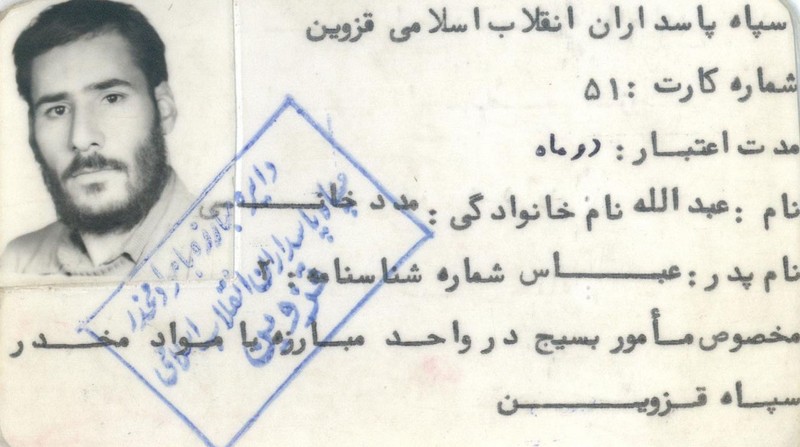 سپاه پاسداران انقلاب اسلامی قزوین
شماره کارت :۵۱
مدت اعتبار : دو ماه
نام :عبدالله نام خانوادگی : مدد خانی
نام پدر :عباس شماره شناسنامه :
مخصوص مأمور بسیج در واحد مبارزه با مواد مخدر
سپاه قزوین
دایره مبارزه با مواد مخدر
سپاه پاسداران انقلاب اسلامی
قزوین